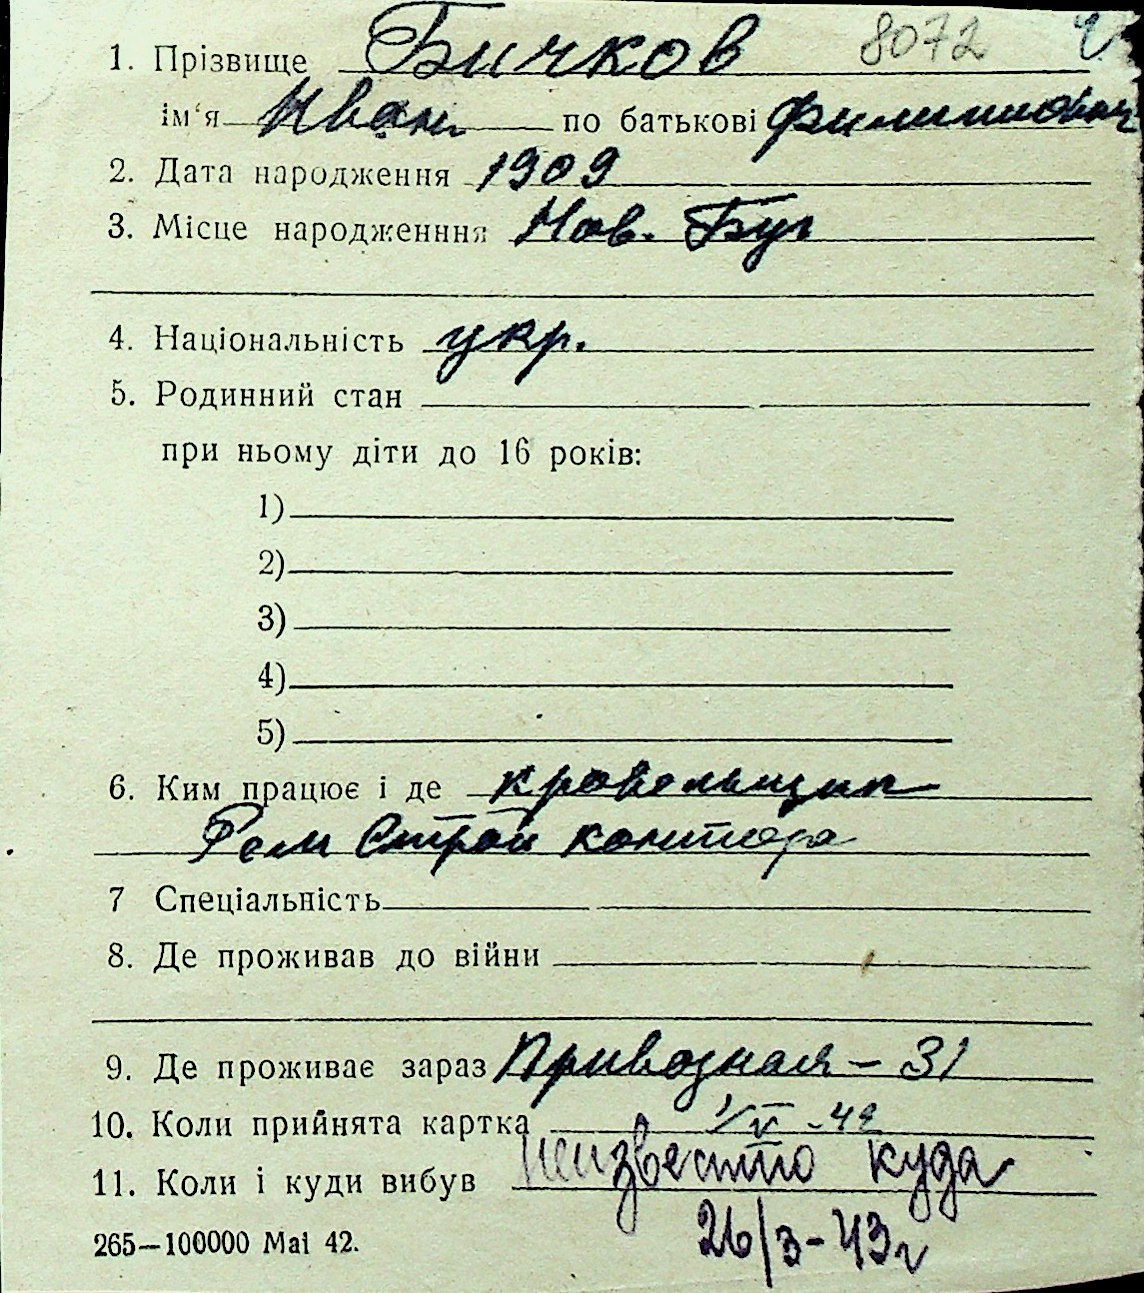 1. Прізвище Бичков 8072
ім'я Иван по батькові Филиппович
2. Дата народження 1909
3. Місце народженння Нов. Буг
4. Національність укр.
5. Родинний стан
при ньому діти до 16 років:
1)
2)
3)
4)
5)
6. Ким працює і де кровельщик
Рем Строй контора
7 Спеціальність
8. Де проживав до війни
9. Де проживає зараз Привозная – 31
10. Коли прийнята картка 1/V - 42
11. Коли і куди вибув неизвестно куда
265—100000 Mai 42. 26/3-43г